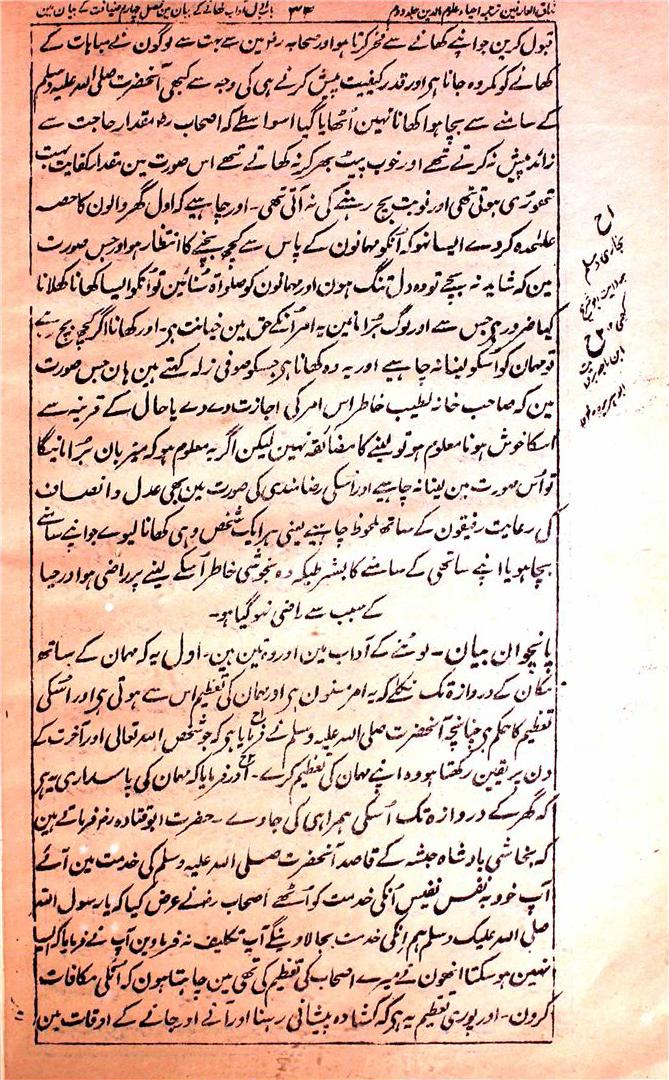 مذاق العارفین ترجمہ احیاء علوم الدین جلد دوم ۳۴ باب اول آداب کھانے کے بیان مین فصل چہارم ضیافت کے بیان مین
قبول کرین جو اپنے کھانے سے فخر کرتا ہو اور صحابہ رض مین سے بہت سے لوگون نے مباہات کے
کھانے کو مکروہ جانا ہی اور قدر کفایت پیش کرنے ہی کی وجہ سے کبھی آنحضرت صلی اللہ علیہ وسلم
کے سامنے سے بچا ہوا کھانا نہین اُٹھایا گیا اسواسطے کہ اصحاب رض مقدار حاجت سے
زائد پیش نہ کرتے تھے اور خوب پیٹ بھر کر نہ کھاتے تھے اس صورت مین مقدار کفایت بہت
تھوڑی ہوتی تھی اور نوبت بچ رہنے کی نہ آتی تھی۔ اور چاہیے کہ اول گھر والون کا حصہ
علٰحدہ کردے ایسا نہو کہ اُنکو مہمانون کے پاس سے کچھ بچنے کا انتظار ہو اور جس صورت
مین کہ شاید نہ بچے تو وہ دل تنگ ہون اور مہمانون کو صلواۃ سُنائین تو اُنکو ایسا کھانا کھلانا
کیا ضرور ہی جس سے اور لوگ بُرا مانین یہ امر اُنکے حق مین خیانت ہی۔ اور کھانا اگر کچھ بچ رہے
تو مہمان کو اُسکو لینا نہ چاہیے اور یہ وہ کھانا ہی جسکو صوفی زلہ کہتے ہین ہان جس صورت
مین کہ صاحب خانہ بطیب خاطر اس امر کی اجازت دے دے یا حال کے قرینہ سے
اسکا خوش ہونا معلوم ہو تو لینے کا مضائقہ نہین لیکن اگر یہ معلوم ہو کہ میزبان بُرا مانیگا
تو اُس صورت مین لینا نہ چاہیے اور اُسکی رضامندی کی صورت مین بھی عدل و انصاف
کی رعایت رفیقون کے ساتھ ملحوظ چاہیے یعنی ہر ایک شخص وہی کھانا لیوے جو اپنے سامنے
بچا ہو یا اپنے ساتھی کے سامنے کا بشرطیکہ وہ بخوشی خاطر اُسکے لینے پر راضی ہو اور حیا
کے سبب سے راضی نہو گیا ہو۔
پانچوان بیان۔ لوٹنے کے آداب مین اور وہ تین ہین۔ اول یہ کہ مہمان کے ساتھ
مکان کے دروازہ تک نکلے کہ یہ امر مسنون ہی اور مہمان کی تعظیم اس سے ہوتی ہی اور اُسکی
تعظیم کا حکم ہی چنانچہ آنحضرت صلی اللہ علیہ وسلم نے فرمایا ہی کہ جو شخص اللہ تعالی اور آخرت کے
دن پر یقین رکھتا ہو وہ اپنے مہمان کی تعظیم کرے۔ اور فرمایا کہ مہمان کی پاسداری یہ ہی
کہ گھر کے دروازہ تک اُسکی ہمراہی کی جاوے۔ حضرت ابوقتادہ رض فرماتے ہین
کہ نجاشی بادشاہ حبشہ کے قاصد آنحضرت صلی اللہ علیہ وسلم کی خدمت مین آئے
آپ خود بہ نفس نفیس اُنکی خدمت کو اُٹھے اصحاب رض نے عرض کیا کہ یا رسول اللہ
صلی اللہ علیک وسلم ہم انکی خدمت بجا لاوینگے آپ تکلیف نہ فرماوین آپ نے فرمایا کہ ایسا
نہین ہو سکتا انھون نے میرے اصحاب کی تعظیم کی تھی مین چاہتا ہون کہ اُنکی مکافات
کرون۔ اور پوری تعظیم یہ ہی کہ کشادہ پیشانی رہنا اور آنے اور جانے کے اوقات مین
بخاری و مسلم